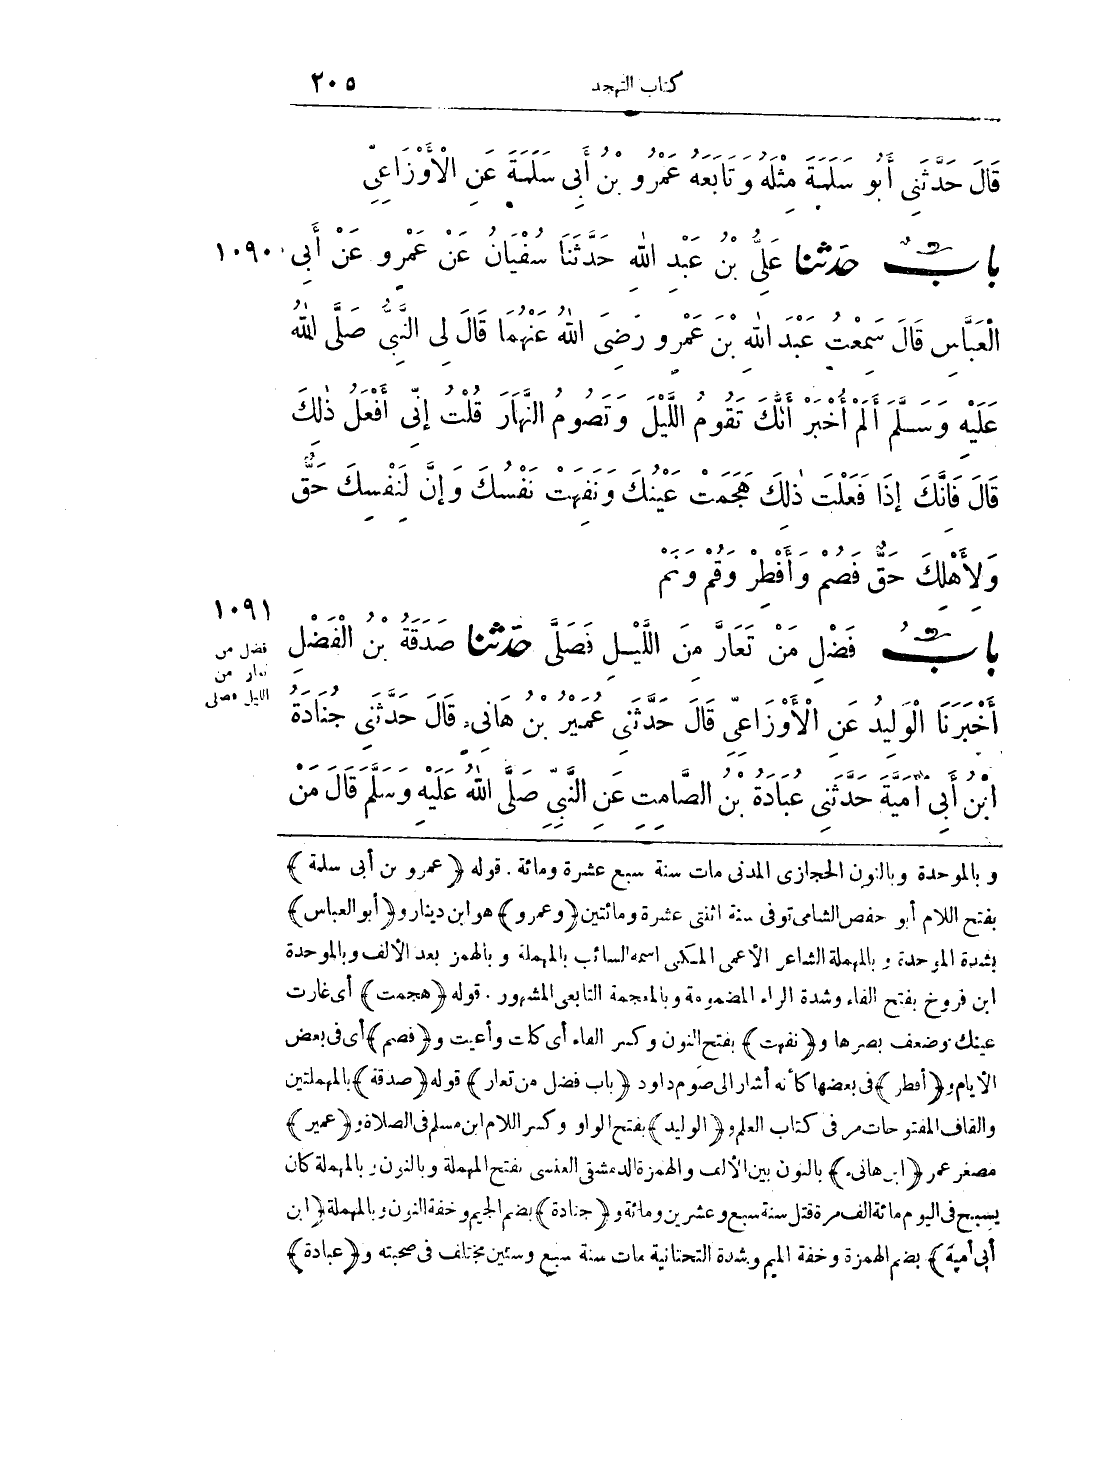 كتاب التهجد ٢٠٥
قَالَ حَدَّثَنِى أَبُو سَلَمَةَ مِثْلَهُ وَتَابَعَهُ عَمْرُو بْنُ أَبِى سَلَمَةَ عَنِ الْأَوْزَاعِىِّ
بَابٌ حَدَّثَنَا عَلِىُّ بْنُ عَبْدِ اللهِ حَدَّثَنَا سُفْيَانُ عَنْ عَمْرٍو عَنْ أَبِى ١٠٩٠
الْعَبَّاسِ قَالَ سَمِعْتُ عَبْدَ اللهِ بْنَ عَمْرٍو رَضِىَ اللهُ عَنْهُمَا قَالَ لِى النَّبِىُّ صَلَّى اللهُ
عَلَيْهِ وَسَلَّمَ أَلَمْ أُخْبَرْ أَنَّكَ تَقُومُ اللَّيْلَ وَتَصُومُ النَّهَارَ قُلْتُ إِنِّى أَفْعَلُ ذٰلِكَ
قَالَ فَإِنَّكَ إِذَا فَعَلْتَ ذٰلِكَ هَجَمَتْ عَيْنُكَ وَنَفِهَتْ نَفْسُكَ وَإِنَّ لِنَفْسِكَ حَقٌّ
وَلِأَهْلِكَ حَقٌّ فَصُمْ وَأَفْطِرْ وَقُمْ وَنَمْ
١٠٩١
بَابُ فَضْلِ مَنْ تَعَارَّ مِنَ اللَّيْلِ فَصَلَّى حَدَّثَنَا صَدَقَةُ بْنُ الْفَضْلِ
فضل من
تعار من
الليل فصلى
أَخْبَرَنَا الْوَلِيدُ عَنِ الْأَوْزَاعِىِّ قَالَ حَدَّثَنِى عُمَيْرُ بْنُ هَانِىءٍ قَالَ حَدَّثَنِى جُنَادَةُ
ابْنُ أَبِى أُمَيَّةَ حَدَّثَنِى عُبَادَةُ بْنُ الصَّامِتِ عَنِ النَّبِىِّ صَلَّى اللهُ عَلَيْهِ وَسَلَّمَ قَالَ مَنْ
وبالموحدة وبالنون الحجازى المدنى مات سنة سبع عشرة ومائة . قوله ﴿عمرو بن أبى سلمة﴾
بفتح اللام أبو حفص الشامى توفى سنة اثنتى عشرة ومائتين ﴿وعمرو﴾ هو ابن دينار و﴿أبو العباس﴾
بشدة الموحدة وبالمهملة الشاعر الأعمى المكى اسمه السائب بالمهملة وبالهمز بعد الألف وبالموحدة
ابن فروخ بفتح الفاء وشدة الراء المضمومة وبالمعجمة التابعى المشهور . قوله ﴿هجمت﴾ أى غارت
عينك وضعف بصرها و﴿نفهت﴾ بفتح النون وكسر الفاء أى كلت وأعيت و﴿فصم﴾ أى فى بعض
الأيام و﴿أفطر﴾ فى بعضها كأنه أشار الى صوم داود ﴿باب فضل من تعار﴾ قوله ﴿صدقة﴾ بالمهملتين
والقاف المفتوحات مر فى كتاب العلم و﴿الوليد﴾ بفتح الواو وكسر اللام ابن مسلم فى الصلاة و﴿عمير﴾
مصغر عمر ﴿ابن هانىء﴾ بالنون بين الألف والهمزة الدمشقى العنسى بفتح المهملة وبالنون وبالمهملة كان
يسبح فى اليوم مائة ألف مرة قتل سنة سبع وعشرين ومائة و﴿جنادة﴾ بضم الجيم وخفة النون وبالمهملة ﴿ابن
أبى أمية﴾ بضم الهمزة وخفة الميم وشدة التحتانية مات سنة سبع وستين مختلف فى صحبته و﴿عبادة﴾